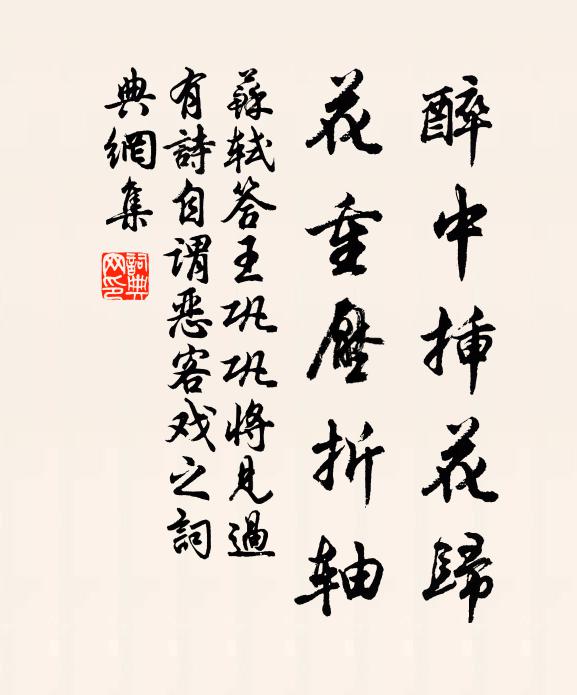 醉中揷花歸
花重壓折轴
蘇轼答王巩巩将見過
有詩自谓恶客戏之詞
典網集
詞典网印